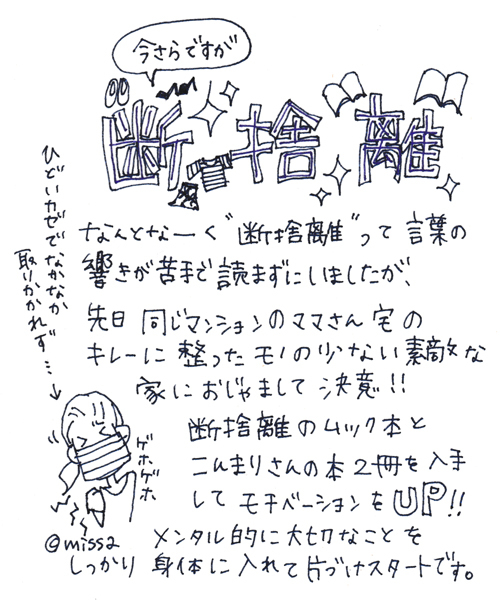 今さらですが
断捨離
なんとなーく"断捨離"って言葉の
響きが苦手で読まずにいましたが、
先日同じマンションのママさん宅の
キレーに整ったモノの少ない素敵な
家におじゃまして決意!!
断捨離のムック本と
こんまりさんの本2冊を入手
してモチベーションをUP!!
メンタル的に大切なことを
しっかり身体に入れて片づけスタートです。
ひどいカゼでなかなか
取りかかれず…
ゲホ
ゲホ
@missa